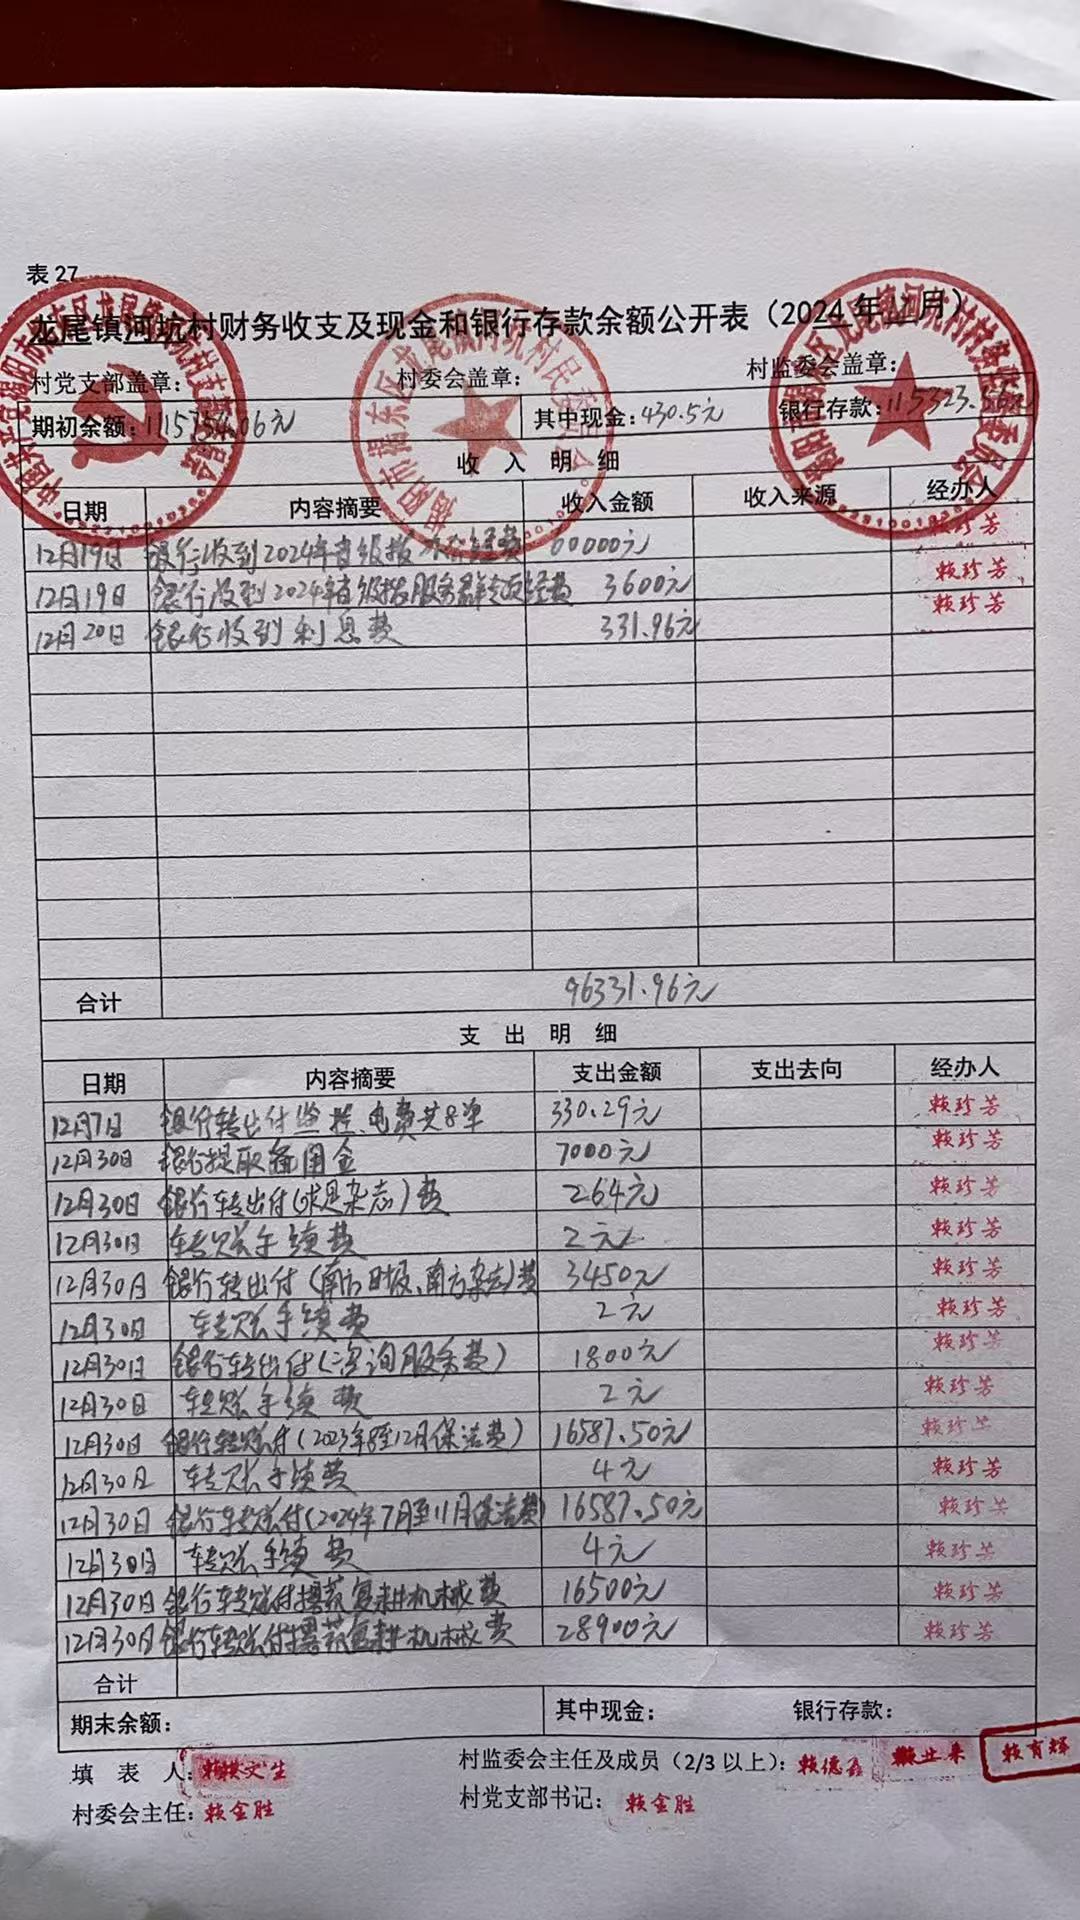 表 27
龙尾镇河坑村财务收支及现金和银行存款余额公开表（2024年12月）
村党支部盖章： 村委会盖章： 村监委会盖章：
期初余额：115754.06元 其中现金：430.5元 银行存款：115323.56元
收 入 明 细
日期 内容摘要 收入金额 收入来源 经办人
12月19日 银行收到2024年省级拨 经费 60000元 赖珍芳
12月19日 银行收到2024年省级拨服务群众专项经费 3600元 赖珍芳
12月20日 银行收到利息费 331.96元 赖珍芳
合计 96331.96元
支 出 明 细
日期 内容摘要 支出金额 支出去向 经办人
12月7日 银行转出付监控、电费共8单 330.29元 赖珍芳
12月30日 银行提取备用金 7000元 赖珍芳
12月30日 银行转出付(求是杂志)费 264元 赖珍芳
12月30日 转账手续费 2元 赖珍芳
12月30日 银行转出付(南方日报、南方杂志)费 3450元 赖珍芳
12月30日 转账手续费 2元 赖珍芳
12月30日 银行转出付(咨询服务费) 1800元 赖珍芳
12月30日 转账手续费 2元 赖珍芳
12月30日 银行转账付(2023年8至12月保洁费) 16587.50元 赖珍芳
12月30日 转账手续费 4元 赖珍芳
12月30日 银行转账付(2024年7月至11月保洁费) 16587.50元 赖珍芳
12月30日 转账手续费 4元 赖珍芳
12月30日 银行转账付撂荒复耕机械费 16500元 赖珍芳
12月30日 银行转账付撂荒复耕机械费 28900元 赖珍芳
合计
期末余额： 其中现金： 银行存款：
填 表 人： 村监委会主任及成员（2/3 以上）：赖德 赖业来 赖育辉
村委会主任：赖金胜 村党支部书记：赖金胜